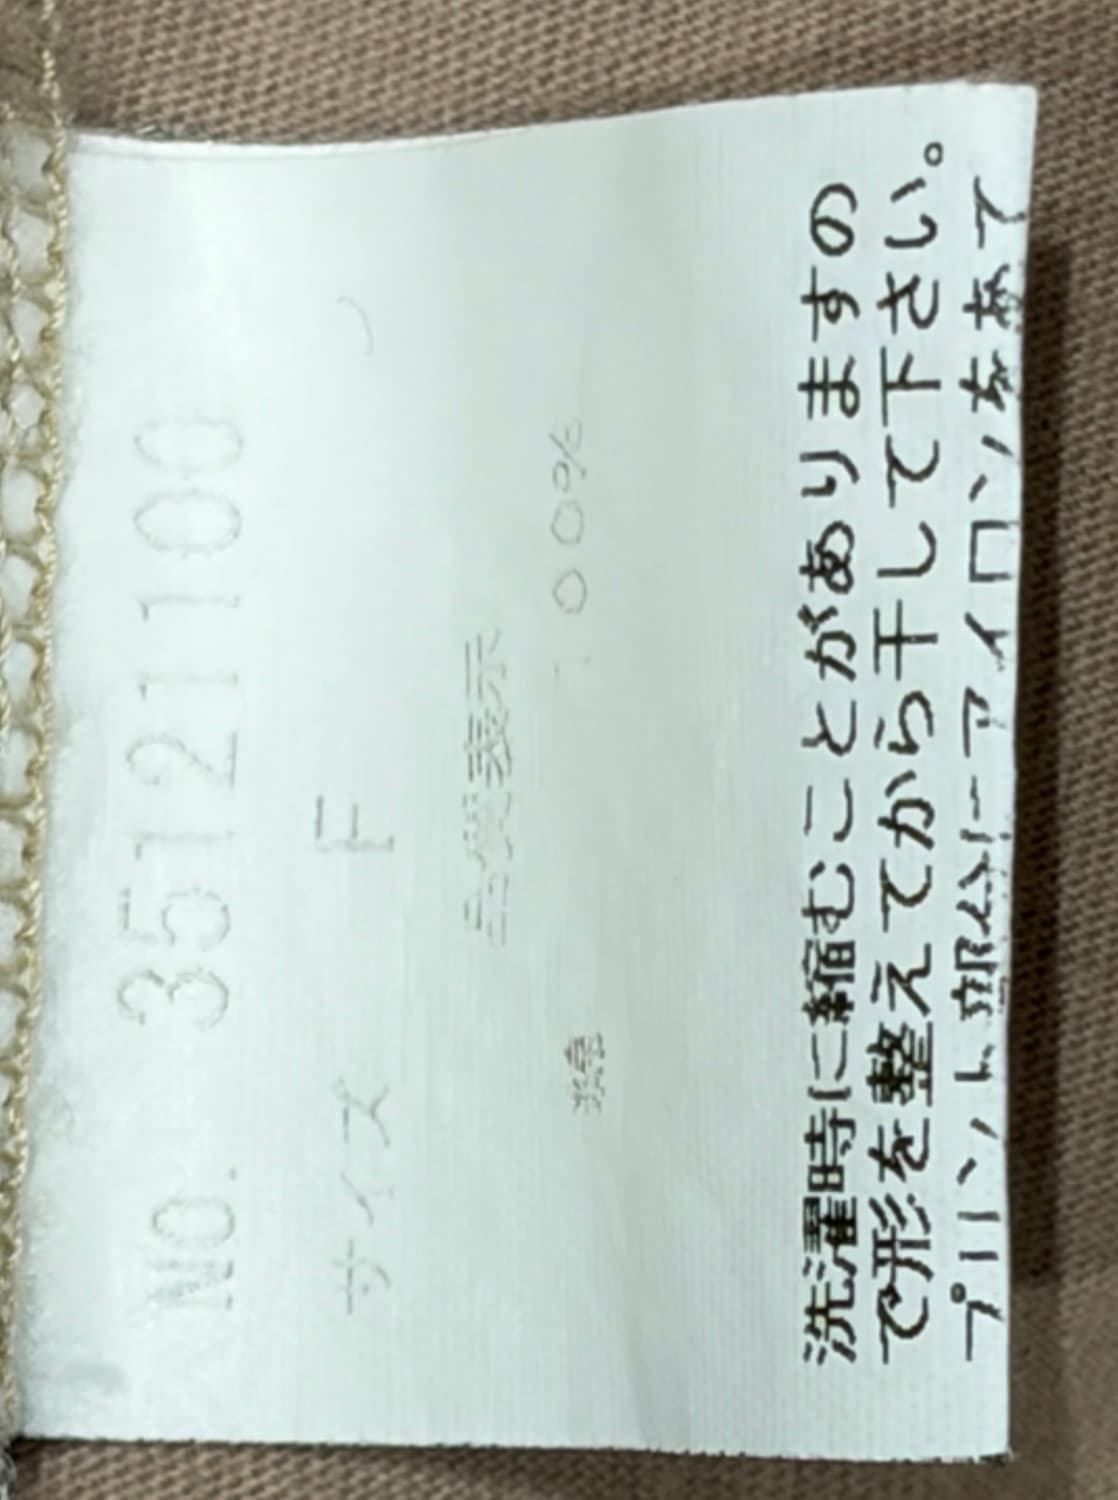 NO. 35121100
サイズ F
品質表示
綿 100%
洗濯時に縮むことがありますの
で形を整えてから干して下さい。
プリント部分にアイロンをあて